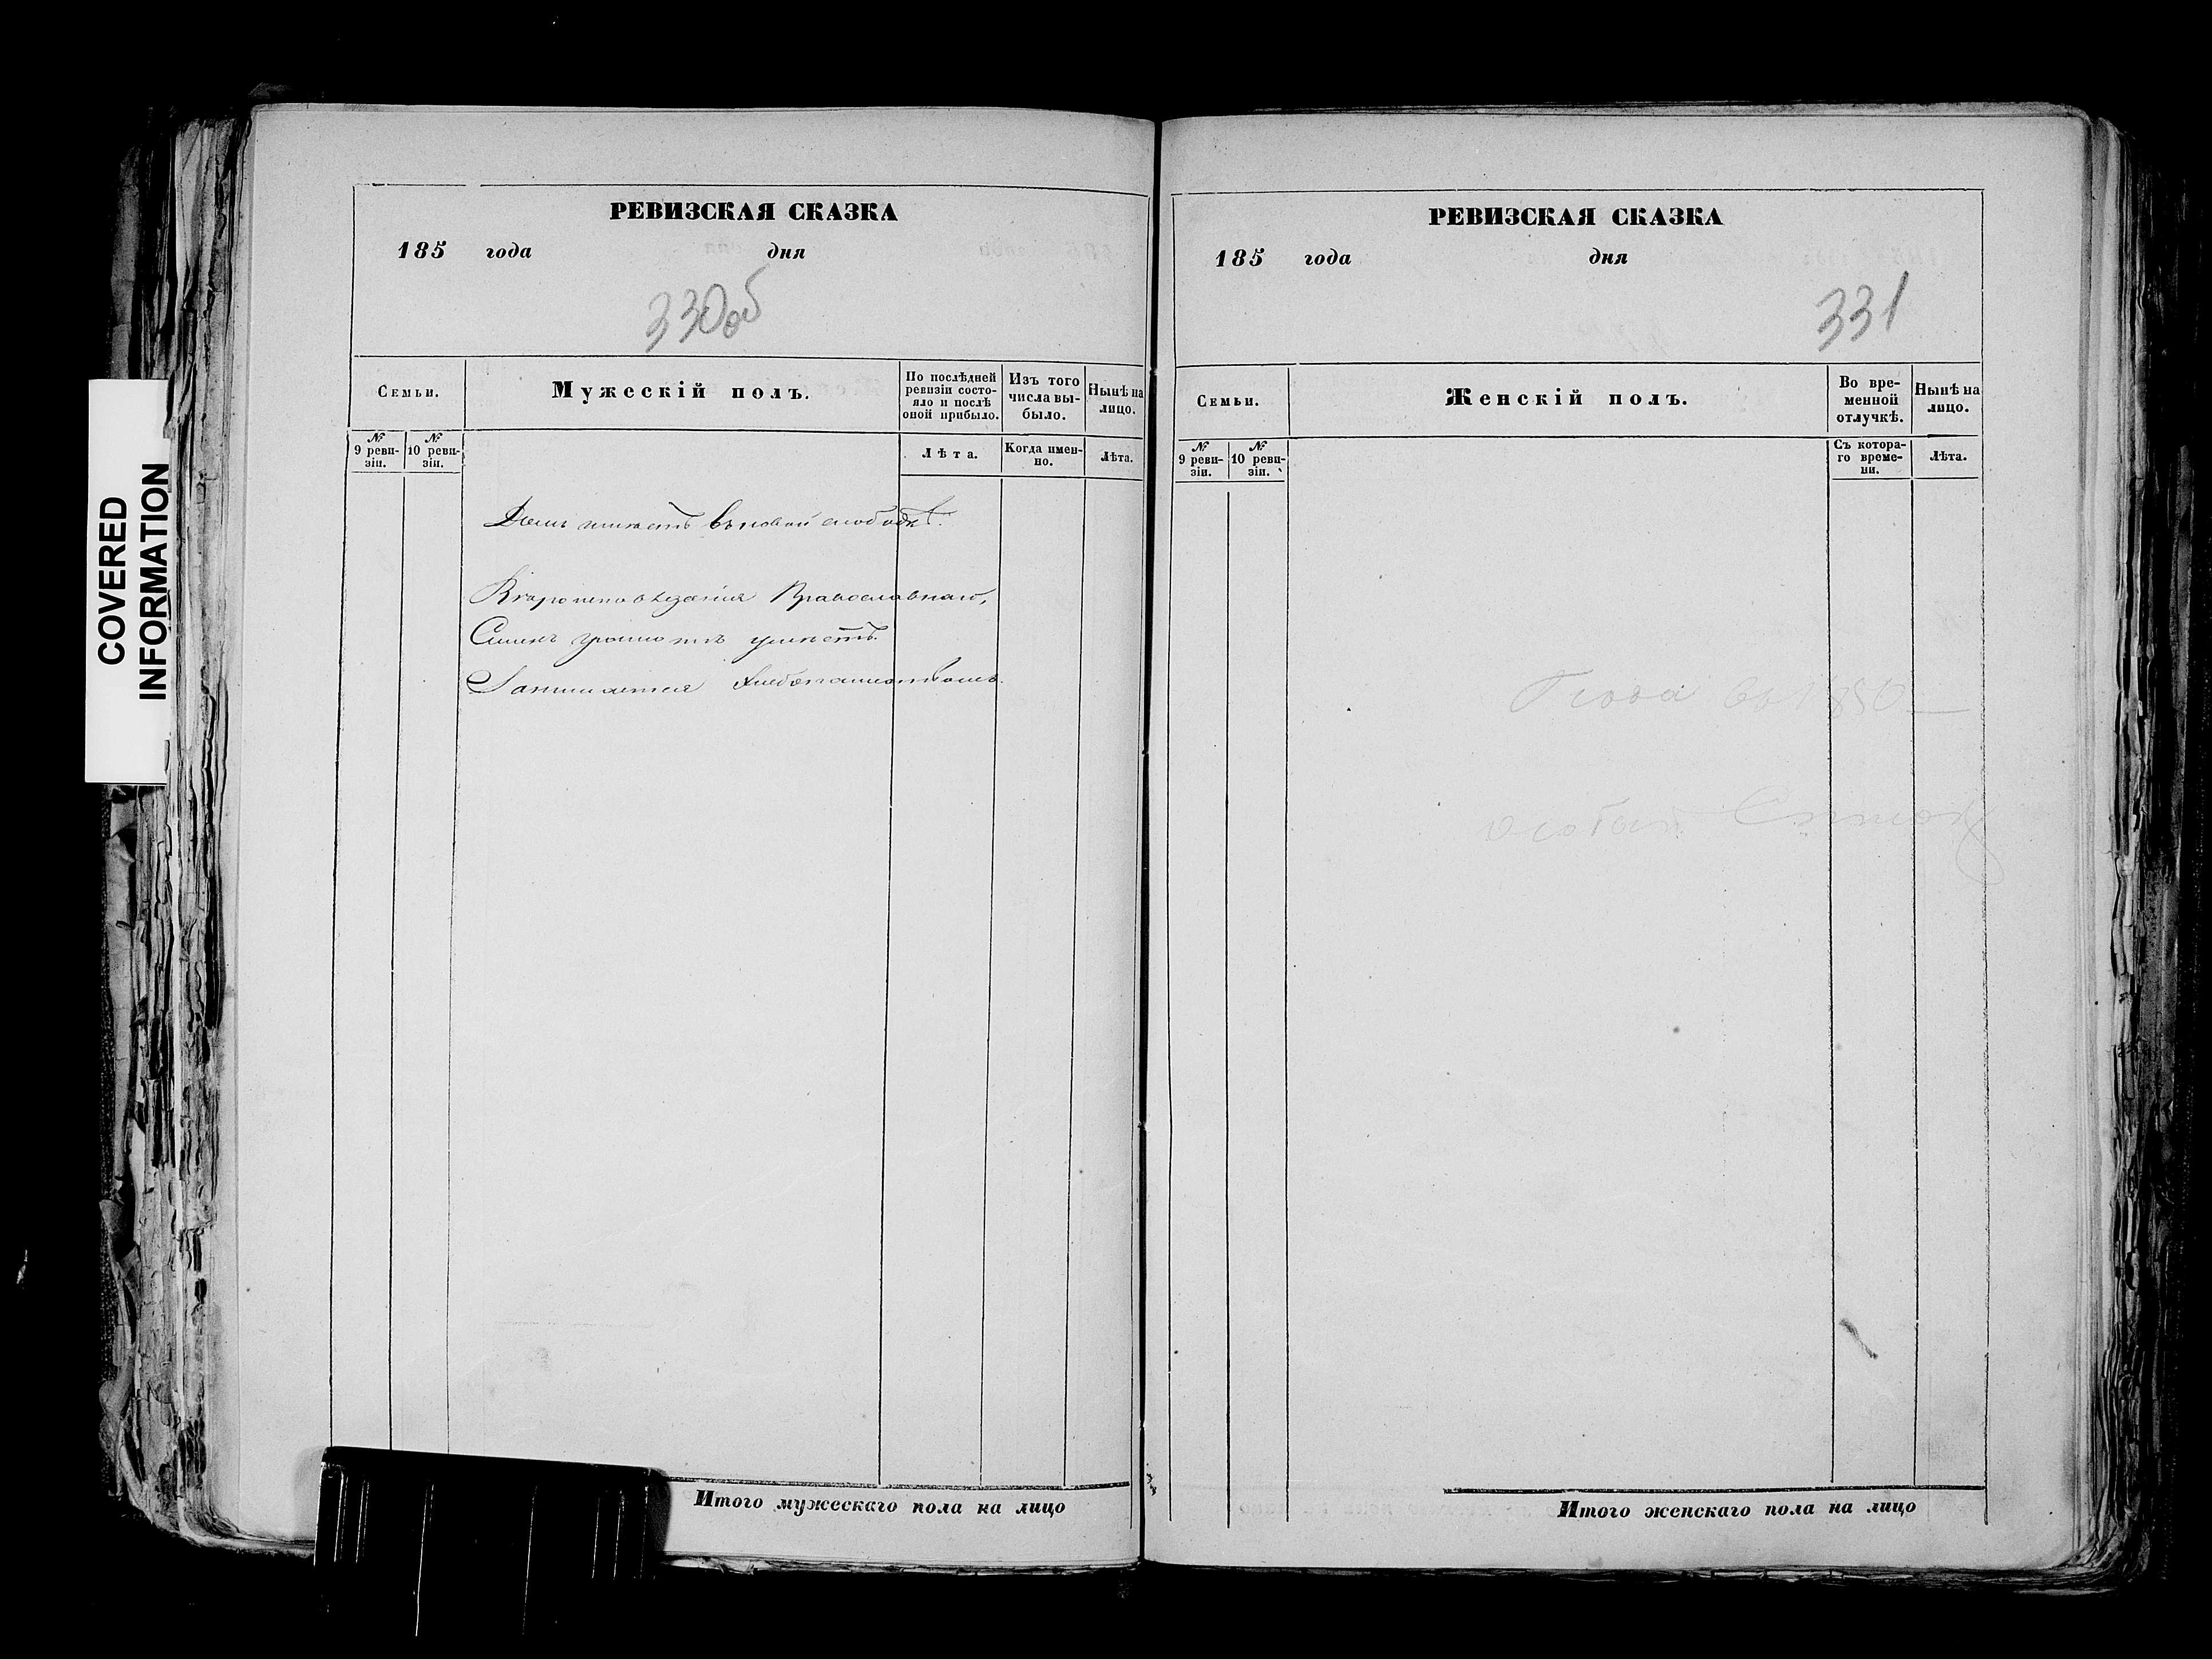 COVERED
INFORMATION
РЕВИЗСКАЯ СКАЗКА
185 года дня
330об
Семьи.
Мужескій полъ.
По послѣдней
ревизіи состо-
яло и послѣ
оной прибыло.
Изъ того
числа вы-
было.
Нынѣ на
лицо.
№
9 реви-
зіи.
№
10 реви-
зіи.
Лѣта.
Когда имен-
но.
Лѣта.
Домъ имѣетъ въ новой слободѣ.
Вѣроисповѣданія Православнаго,
грамотѣ умѣетъ.
Занимается хлебопашествомъ.
Итого мужескаго пола на лицо
РЕВИЗСКАЯ СКАЗКА
185 года дня
331
Семьи.
Женскій полъ.
Во вре-
менной
отлучкѣ.
Нынѣ на
лицо.
№
9 реви-
зіи.
№
10 реви-
зіи.
Съ котора-
го време-
ни.
Лѣта.
въ 1850
Итого женскаго пола на лицо